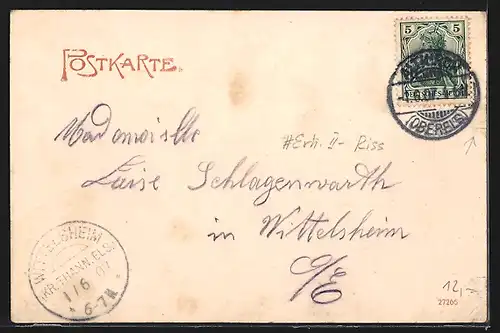 POSTKARTE.
5 5
(OBERELS)
Mademoiselle
#Erh. II- Riss
Luise Schlagenwarth
in Wittelsheim
O/E
WITTELSHEIM
(KR. THANN, ELS)
1/6 07
6-7N
12,-
27200